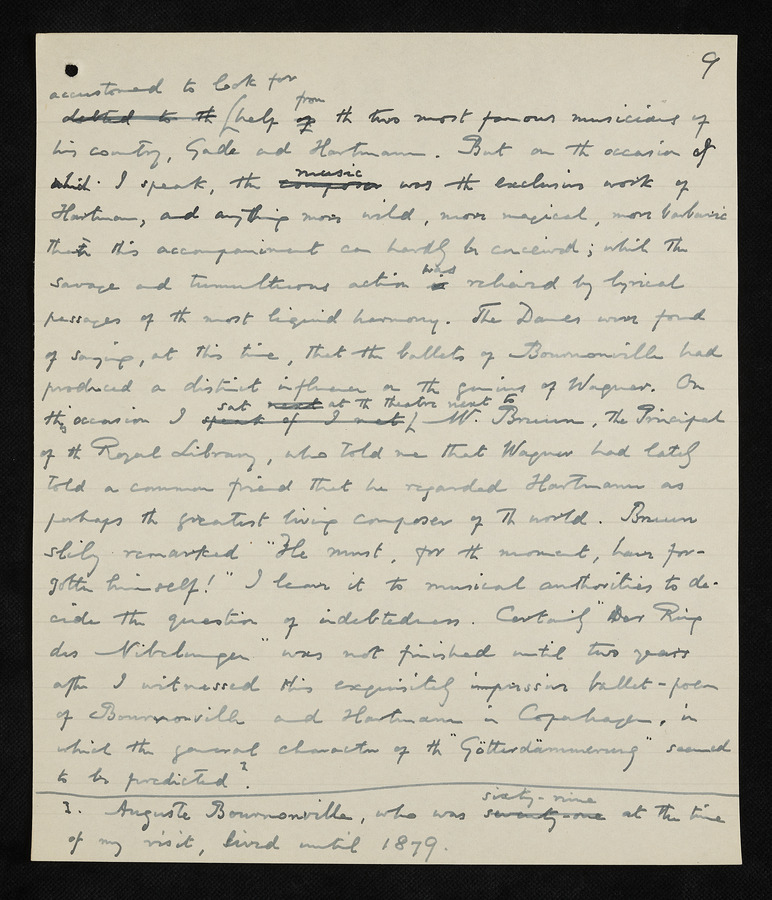 9
accustomed to look for
debted to th help from of th two most famous musicians of
his country, Gade and Hartmann. But on th occasion of
which I speak, the composer music was th exclusive work of
Hartmann, and anything more wild, more magical, more barbaric
than this accompaniment can hardly be conceived; while the
savage and tumultuous action is was relieved by lyrical
passages of th most liquid harmony. The Danes were fond
of saying, at this time, that th ballets of Bournonville had
produced a distinct influence on th genius of Wagner. On
sat next at th theatre next to
this occasion I speak of I met M. Bruun, the Principal
of th Royal Library, who told me that Wagner had lately
told a common friend that he regarded Hartmann as
perhaps th greatest living composer of th world. Bruun
slily remarked "He must, for th moment, have for-
gotten himself!" I leave it to musical authorities to de-
cide the question of indebtedness. Certainly "Der Ring
des Nibelungen" was not finished until two years
after I witnessed this exquisitely impressive ballet-poem
of Bournonville and Hartmann in Copenhagen, in
which the general character of th "Götterdämmerung" seemed
to be predicted.²
sixty-nine
2. Auguste Bournonville, who was seventy-one at the time
of my visit, lived until 1879.